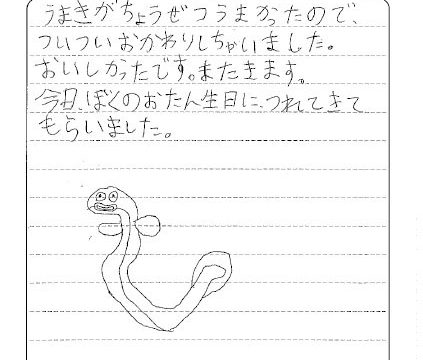 うまきがちょうぜつうまかったので、
ついついおかわりしちゃいました。
おいしかったです。またきます。
今日、ぼくのおたん生日に、つれてきて
もらいました。